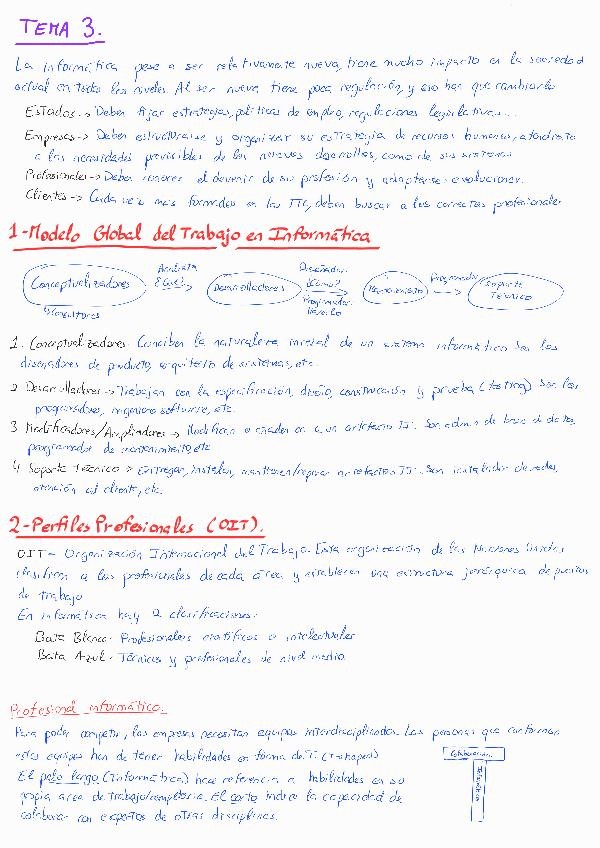 TEMA 3.
La informática pese a ser relativamente nueva, tiene mucho impacto en la sociedad
actual en todos los niveles. Al ser nueva tiene poca regulación, y eso hay que cambiarlo
Estados -> Deben fijar estrategias, políticas de empleo, regulaciones legislativas...
Empresas -> Deben estructurarse y organizar su estrategia de recursos humanos, atendiendo
a las necesidades previsibles de los nuevos desarrollos, como de sus sistemas
Profesionales -> Deben conocer el devenir de su profesión y adaptarse a evolucionar.
Clientes -> Cada vez más formados en las TIC, deben buscar a los correctos profesionales
1-Modelo Global del Trabajo en Informática
Conceptualizadores
Analista
¿Qué?
Desarrolladores
Diseñador
¿Cómo?
Programador
Mantenimiento
Programador
Soporte
Técnico
Consultores
1. Conceptualizadores- Conciben la naturaleza inicial de un sistema informático. Son los
diseñadores de producto, arquitecto de sistemas, etc.
2 Desarrolladores -> Trabajan con la especificación, diseño, construcción y prueba (testing) Son los
programadores, ingeniero software, etc.
3 Modificadores/Ampliadores -> Modifican o añaden en a un artefacto IT. Son admin de bases de datos,
programador de mantenimiento, etc
4 Soporte Técnico -> Entregar, instalar, mantener/reparar artefactos IT. Son instalador de redes,
atención al cliente, etc.
2-Perfiles Profesionales (OIT).
OIT- Organización Internacional del Trabajo. Esta organización de las Naciones Unidas
clasifican a los profesionales de cada área y establecen una estructura jerárquica de puestos
de trabajo
En informática hay 2 clasificaciones:
Bata Blanca- Profesionales científicos o intelectuales
Bata Azul- Técnicos y profesionales de nivel medio.
Profesional informático.
Para poder competir, las empresas necesitan equipos interdisciplinados. Las personas que conforman
estos equipos han de tener habilidades en forma de T. (T-shaped)
Colaboración
El palo largo (Informática) hace referencia a habilidades en su
propia área de trabajo/completaria. El corto indica la capacidad de
colaborar con expertos de otras disciplinas.